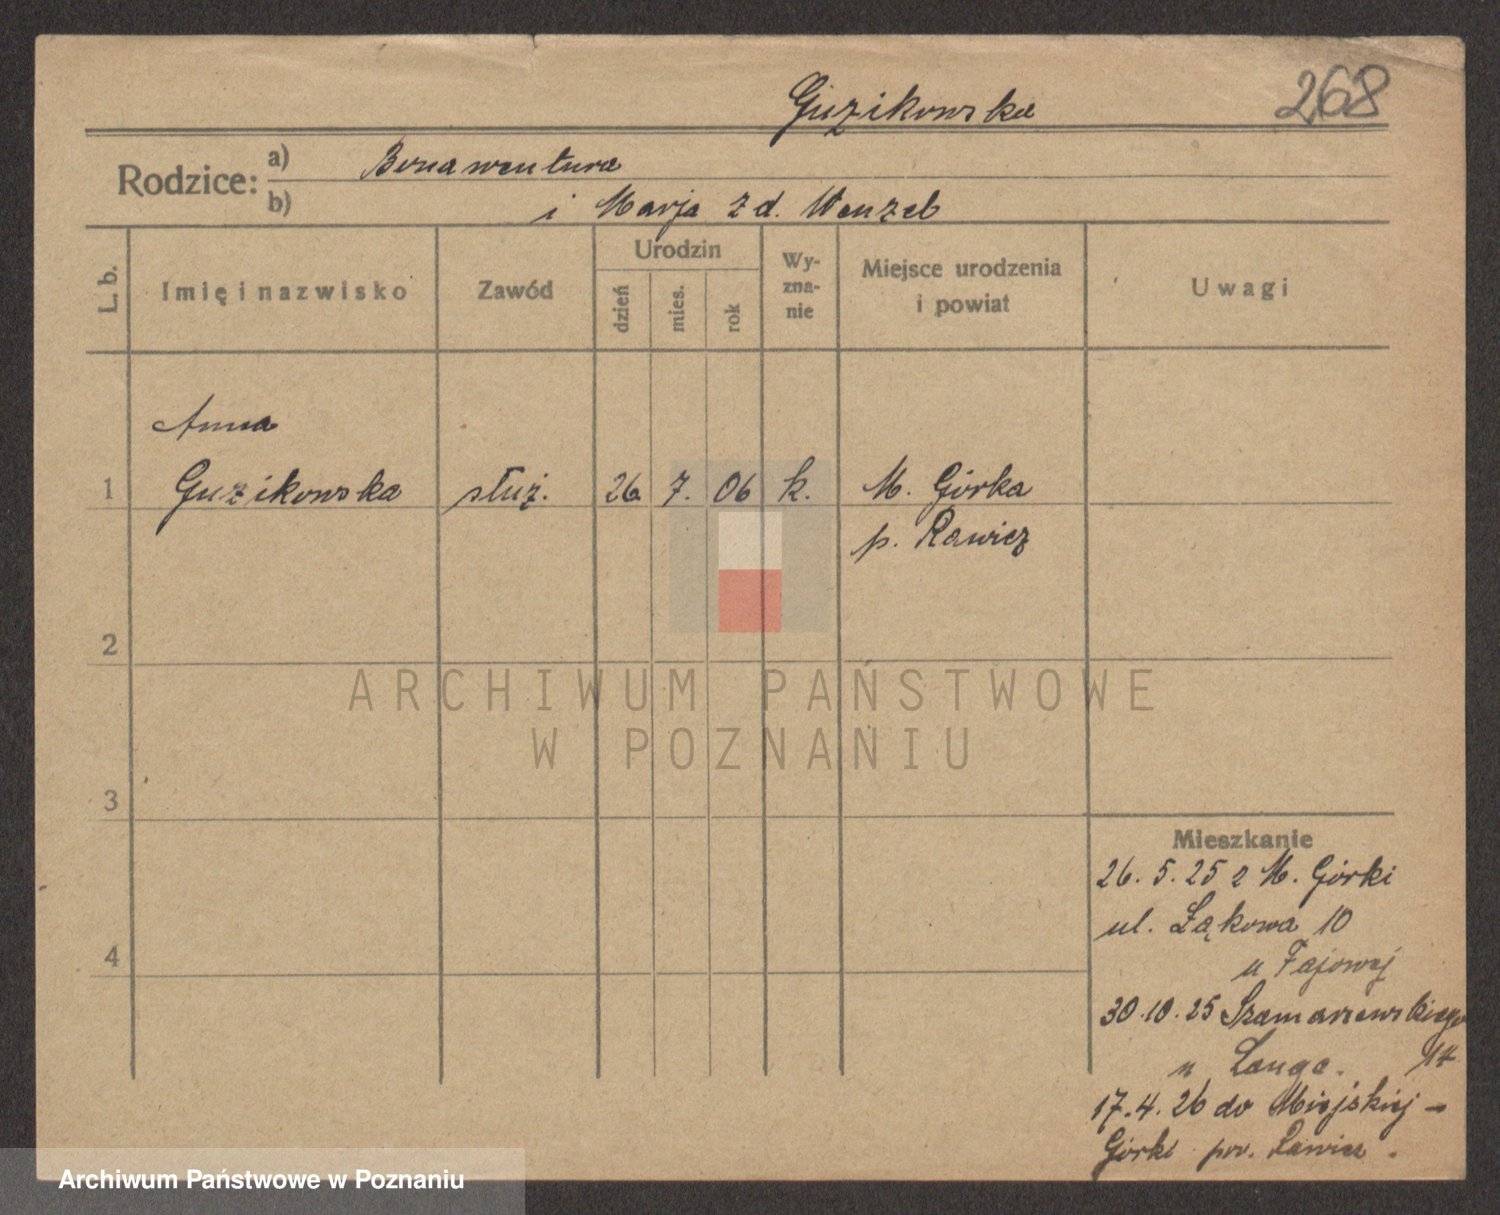 Guzikowska 268
Rodzice: a) Bonawentura
b) i Marja z d. Wenzel
L. b. Imię i nazwisko Zawód Urodzin dzień mies. rok Wy-zna-nie Miejsce urodzenia i powiat Uwagi
Anna
1 Guzikowska służ. 26 7. 06 k. M. Górka
p. Rawicz
2
ARCHIWUM PAŃSTWOWE
W POZNANIU
3
Mieszkanie
26. 5. 25 z M. Górki
ul. Łąkowa 10
4
u Fajowej
30. 10. 25 Szamarzewskiego
u Lange. 14
17. 4. 26 do Miejskiej -
Górki pow. Rawicz.
Archiwum Państwowe w Poznaniu